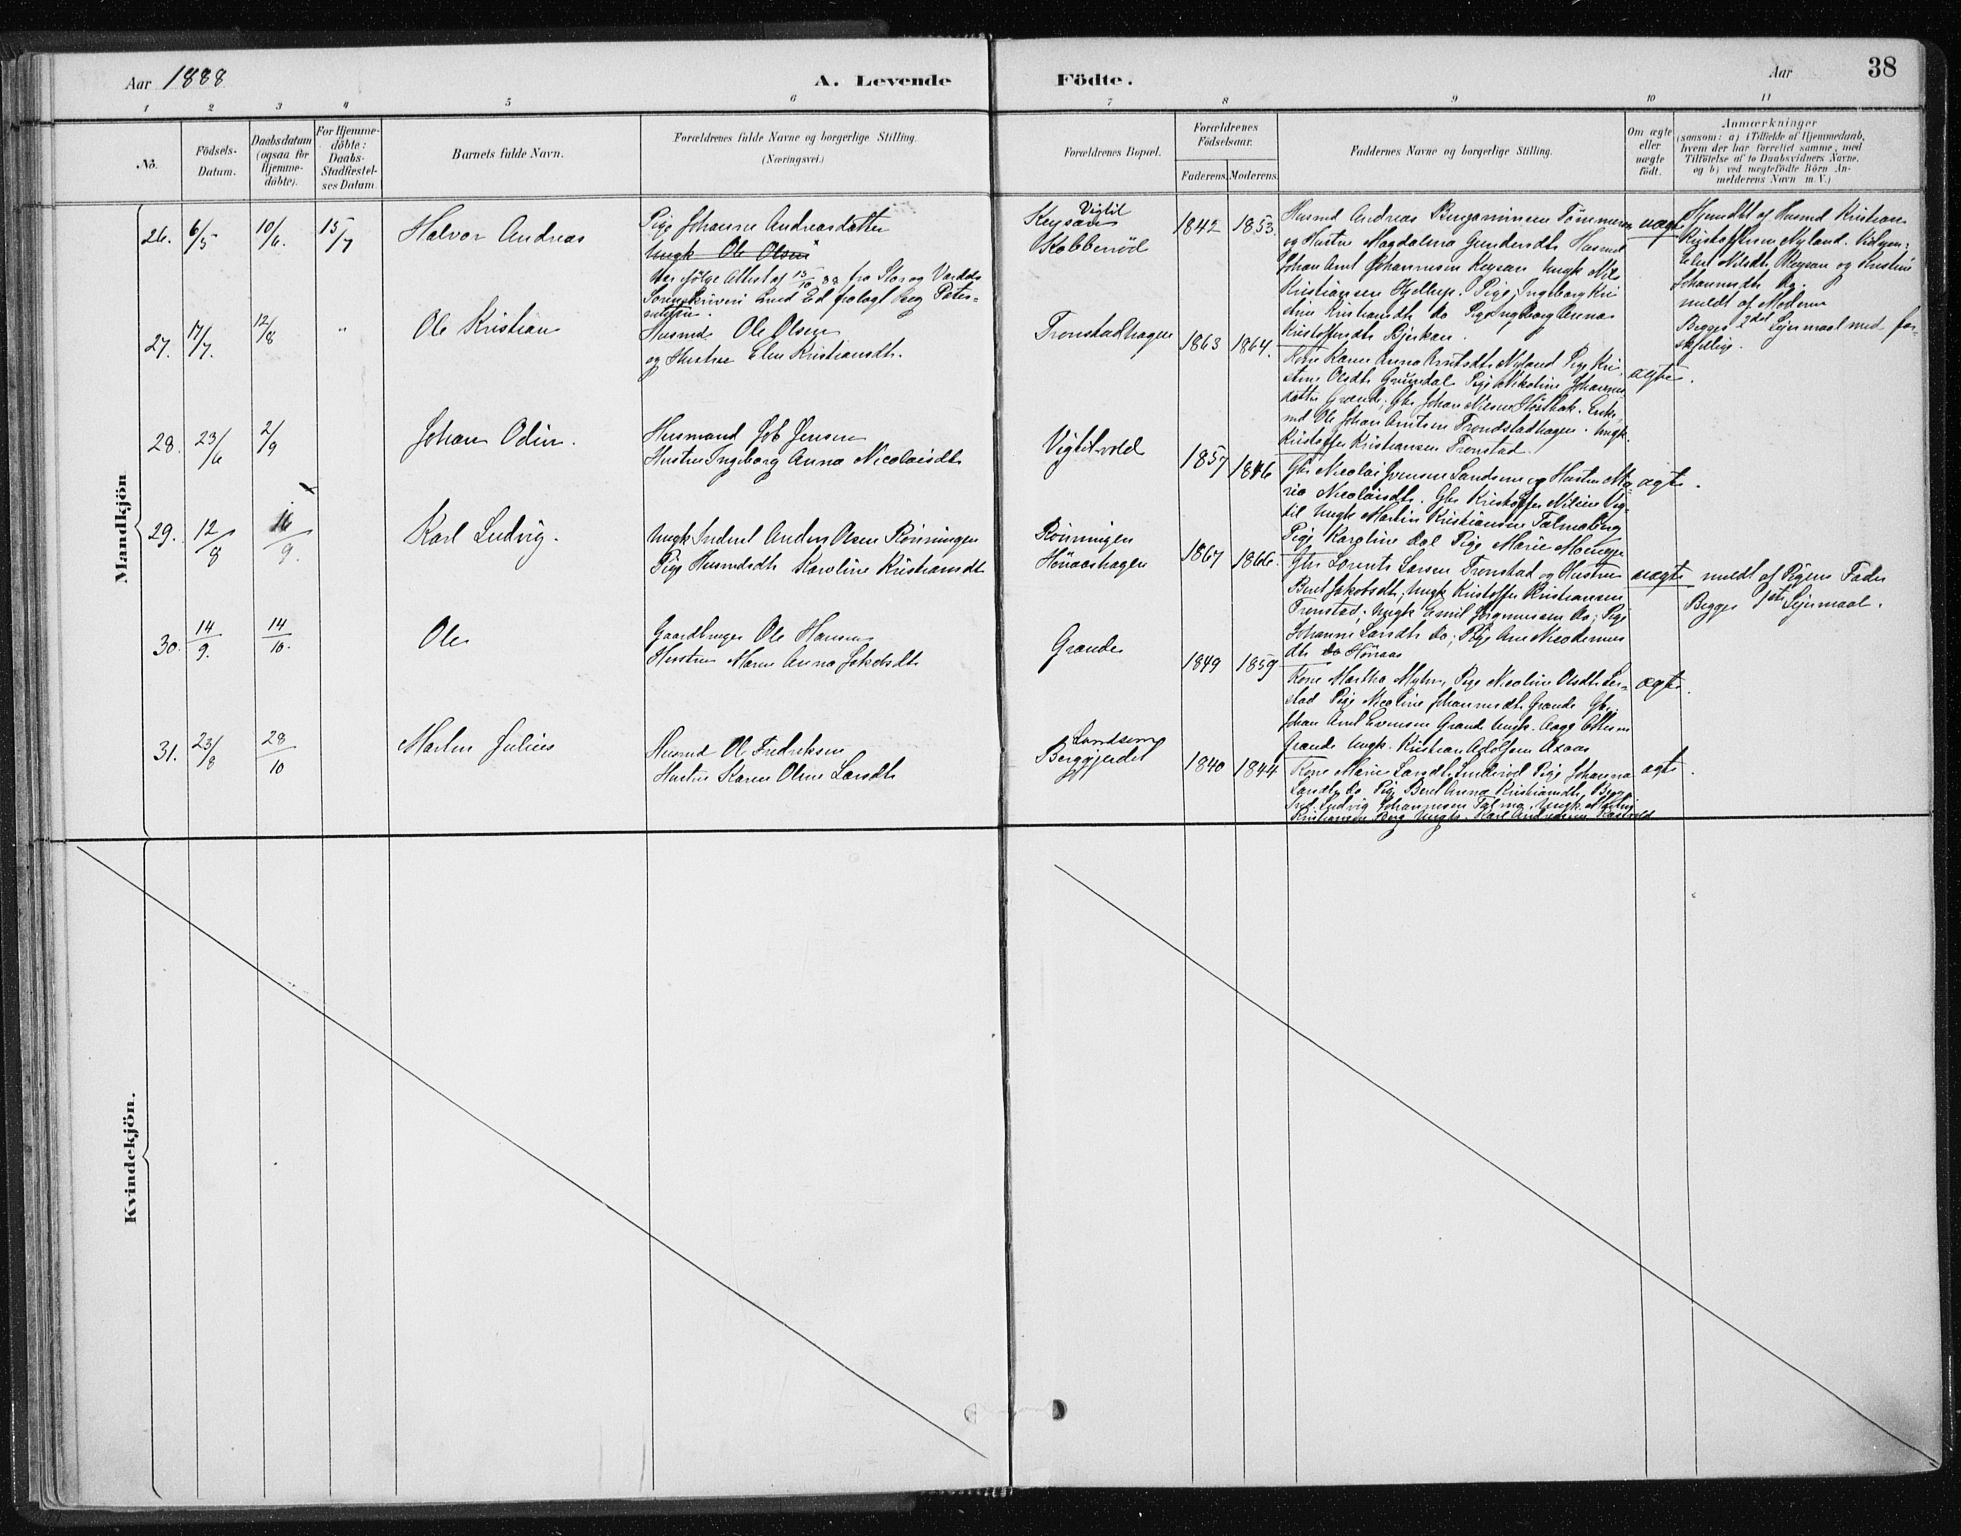 Aar 1888
A. Levende
Födte.
Aar
38
1 2 3 4 5 6 7 8 9 10 11
No.
Födsels-
Datum.
Daabsdatum
(ogsaa for
Hjemme-
döbte).
For Hjemme-
döbte:
Daabs-
Stadfæstel-
ses Datum.
Barnets fulde Navn.
Forældrenes fulde Navne og borgerlige Stilling.
(Næringsvei.)
Forældrenes Bopæl.
Forældrenes
Födselsaar.
Faderens. Moderens.
Faddernes Navne og borgerlige Stilling.
Om ægte
eller
uægte
födt.
Anmærkninger
(saasom: a) i Tilfælde af Hjemmedaab,
hvem der har forrettet samme, med
Tilföielse af to Daabsvidners Navne,
og b) ved uegtefödte Börn An-
melderens Navn m. V.)
Mandkjön
26. 6/5 10/6. 15/7
Halvor Andreas
Pige Johanne Andreasdatter
Ungk Ole Olsen
fra Stor og Værdals
Sorenskriveri
Vigtil
Keysan
Kobberöd
1842 1853.
Husmd Andreas Benjaminsen Tömmeraa
og Hustru Magdalena Gundersdt. Husmd
Johan Arnt Johannesen Keysan Ungk Nils
Kristiansen Hjellup. Pige Ingeborg Kri-
stine Kristiansdt. do Pige Ingeborg Anna
Kristoffersdt. Bjerkan.
uægte
Hjemdbt af Husmd Kristian
Kristoffersen Nyland. Vidner:
Elen Nilsdt. Keysan og Kristine
Johannesdt. do.
meldt af Moderen
Begges 2det Leiermaal med for-
skjellige.
27. 17/7. 12/8 "
Ole Kristian
Husmd Ole Olsen
og Hustru Elen Kristiansdt.
Tronstadhagen
1863 1864.
Kone Karen Anna Arntsdt. Nyland Pige Kri-
stine Olsdt. Grundal Pige Nikoline Johannes-
datter Grande, Gbr. Johan Nilsen Hostbak. Enke-
md Ole Johan Arntsen Trondstadhagen. Ungk.
Kristoffer Kristiansen Tronstad.
ægte.
28. 23/6 2/9
Johan Odin.
Husmand Job Jensen
Hustru Ingeborg Anna Nicolaisdt.
Vigtilvold
1857 1846
Gbr Nicolai Jensen Landsem og Hustru Ma-
ria Nicolaisdt. Gbr Kristoffer Nilsen Vig-
til Ungk Martin Kristiansen Talmoberg
Pige Karoline dal Pige Marie
ægte.
29. 12/8 16/9.
Karl Ludvig.
Ungk Inderst Anders Olsen Rönningen
Pige Husmdsdt. Karoline Kristiansdt.
Rönningen
Hönaashagen
1867 1866.
Gbr Lorents Larsen Tronstad og Hustru
Beret Jakobsdt; Ungk Kristoffer Kristiansen
Tronstad; Ungk Emil Jörgensen do; Pige
Johanne Larsdt. do; Pige Ane Nicodemus
dt. Hönaas
uægte
meldt af Pigens Fader
Begges 1ste Lejermaal.
30. 14/9. 14/10.
Ole
Gaardbruger Ole Hansen
Hustru Maren Anna Jakobsdt.
Grande
1849 1859
Kone Martha Myhr, Pige Nicoline Olsdt. Lei-
stad Pige Nicoline Johannesdt. Grande Gbr.
Johan Arnt Svensen Grande Ungk. Aage Ottesen
Grande Ungk. Kristian Adolfsen Aasaas
ægte.
31. 23/8 28/10
Martin Julius
Husmd Ole Fredriksen
Hustru Karen Oline Larsdt.
Landsem
Berggjerdet
1840 1844
Kone Marie Larsdt. Pige Johanna
Larsdt. do Pige Beret Anna Kristiansdt. Berg
Ludvig Johannesen Talmo, Ungk. Martin
Kristiansen Berg Ungk. Karl Andreasen
ægte.
Kvindekjön.